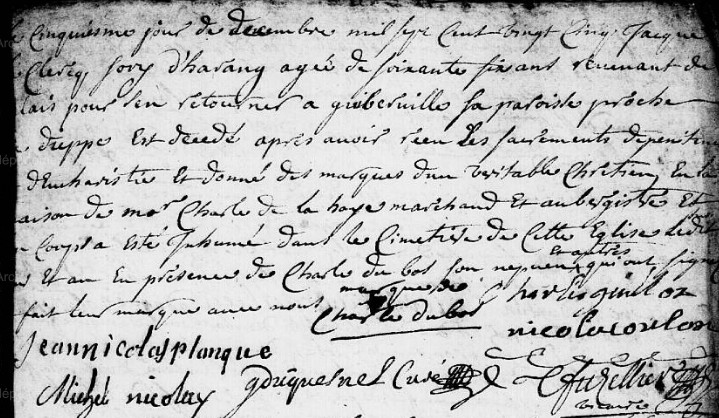 Cinquiesme jour de decembre mil sept Cent vingt Cinq Jacque
Clercq sory d'harang agée de soixante six ans revenant de
lais pour s'en retourner a gioberville sa paroisse proche
dieppe Est decedé apres avoir receu Les sacrements de penitence
d'Eucharistie Et donné des marques d'un veritable Chretien En la
maison de mor Charle de la haye marchand Et aubergiste Et
Corps a Esté Inhumé dans le Cimetiere de Cette Eglise Ledit
Et autres
Et an En presence de Charle du bos son nepveux qui ont signé
fait leur marque avec nous
marque de
Charle du bos
Charles
nicola coulon
Jean nicolas planque
Michel nicolay
g duquesnel Curé
fuzellier
vicaire